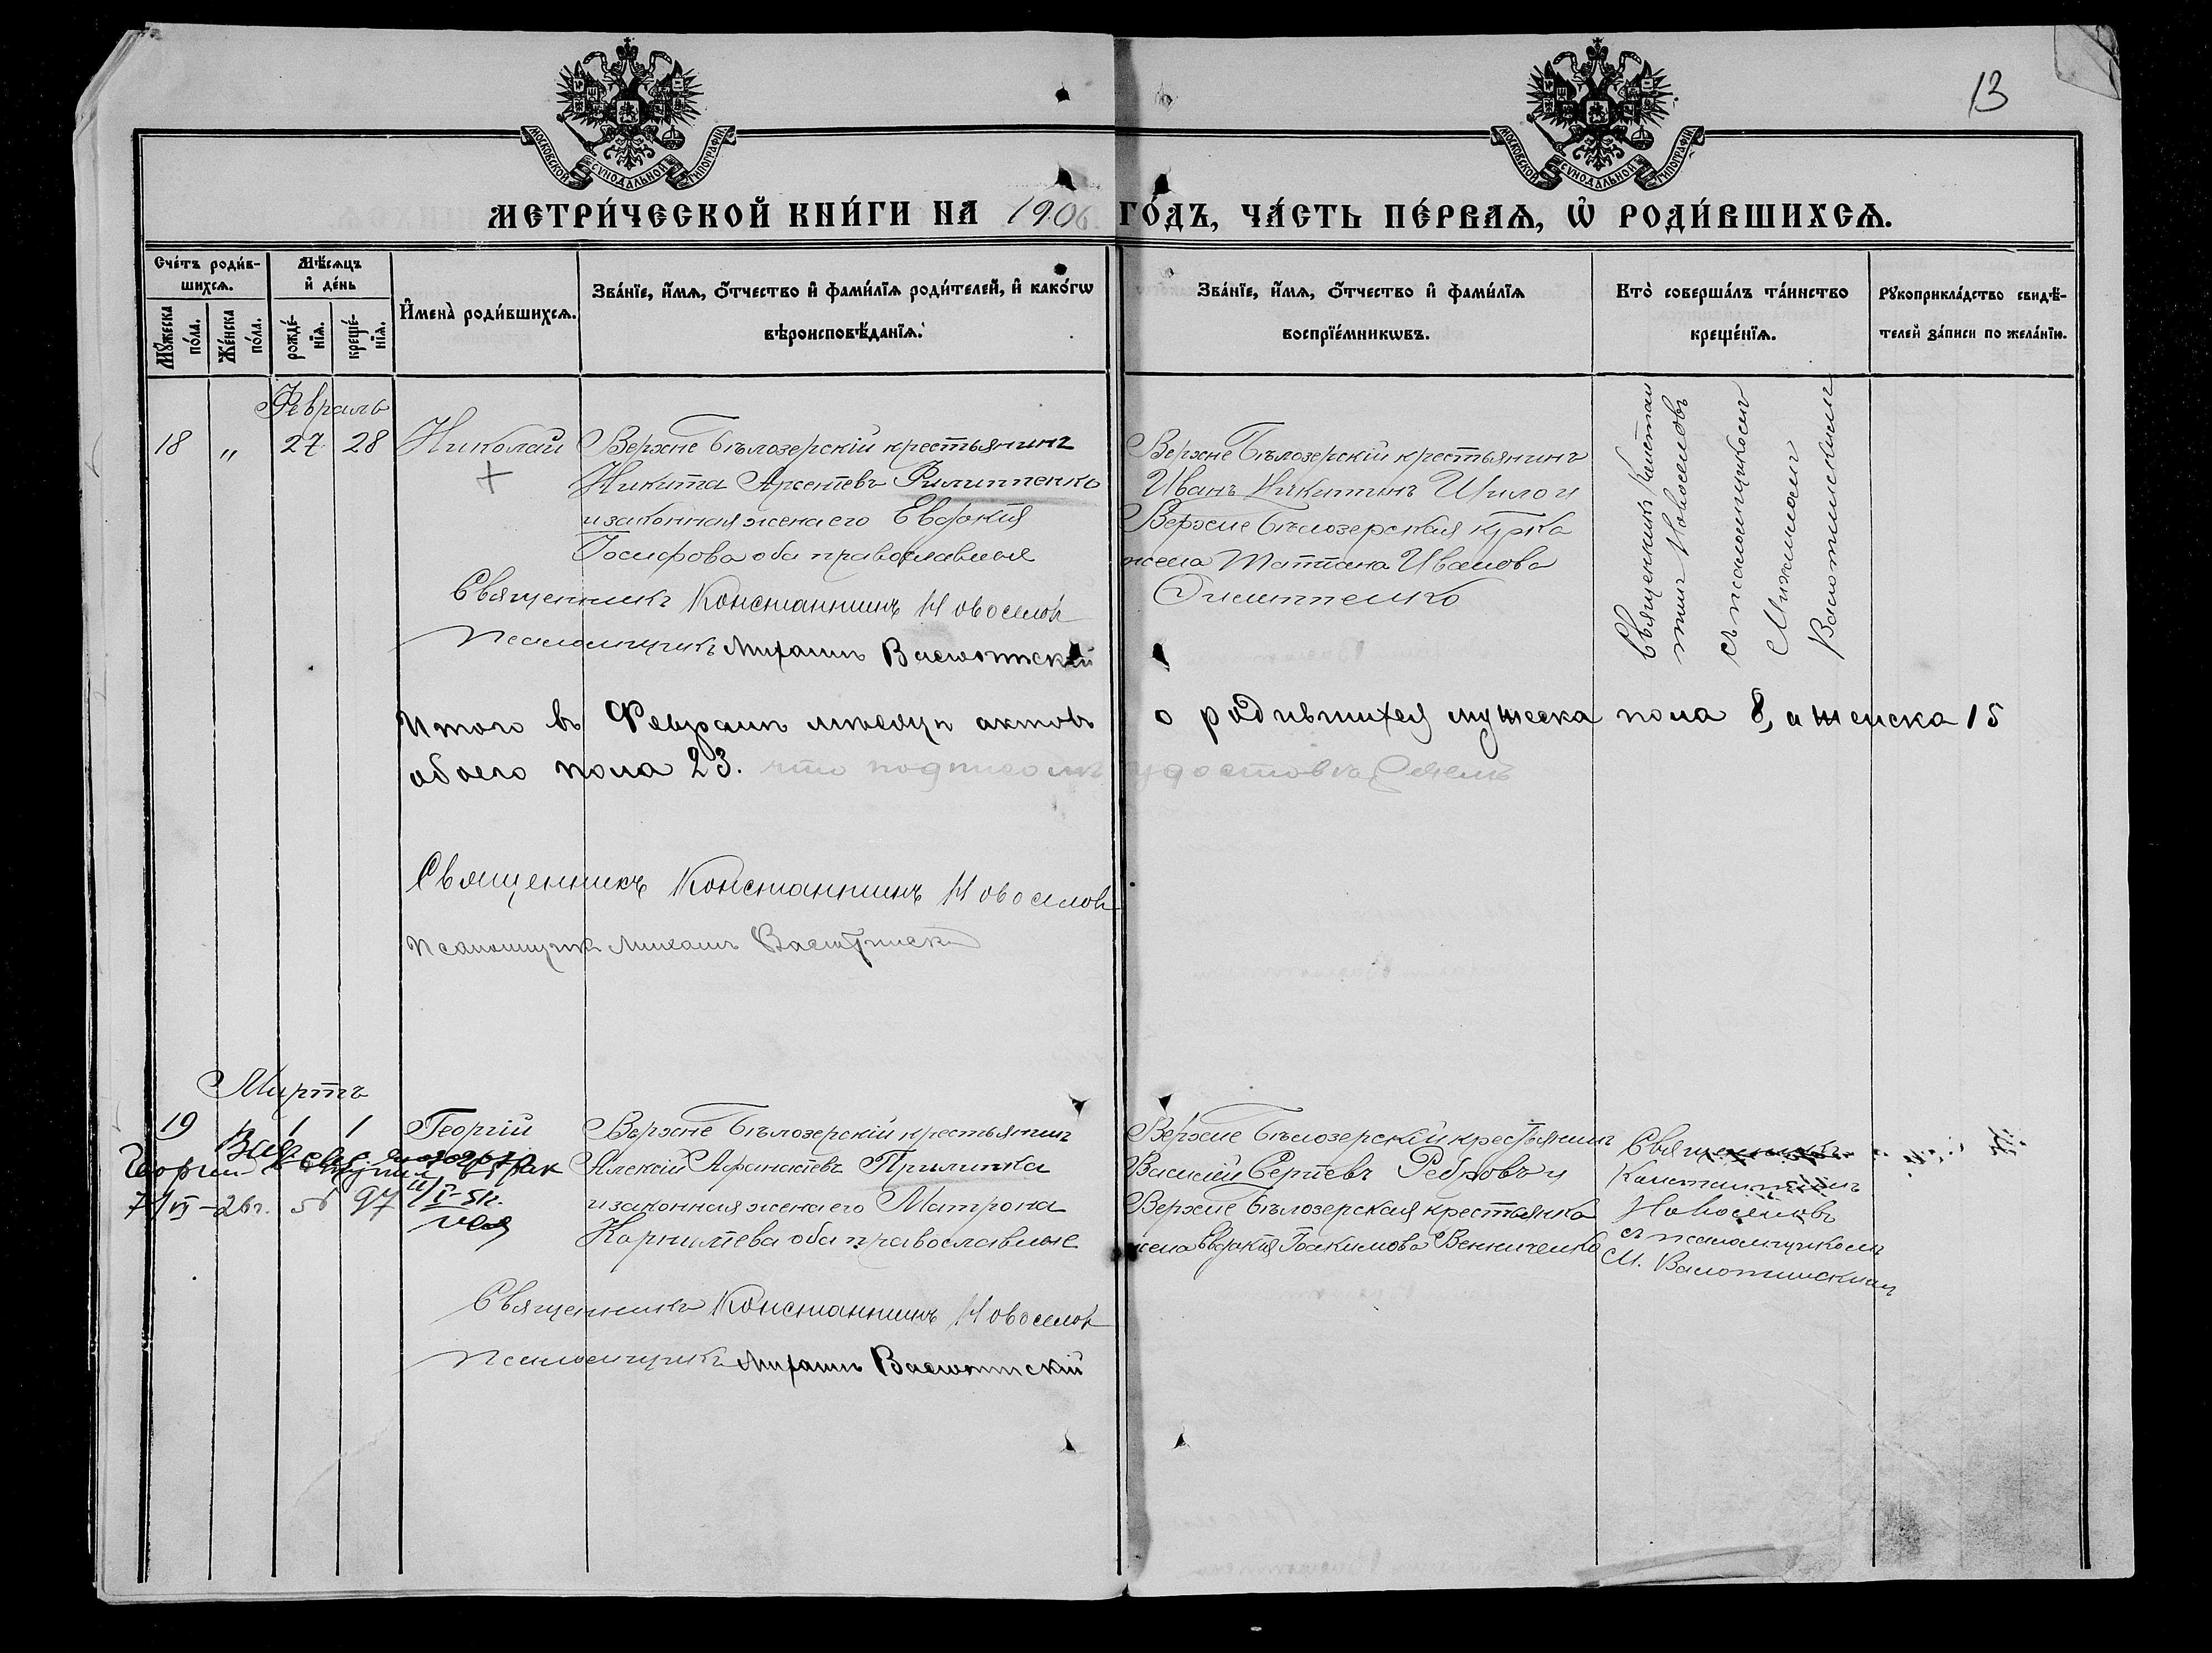 13
МОСКОВСКОЙ СУНОДАЛЬНОЙ ТИПОГРАФІИ
МОСКОВСКОЙ СУНОДАЛЬНОЙ ТИПОГРАФІИ
МЕТРИ́ЧЕСКОЙ КНИ́ГИ НА 1906 ГО́ДЪ, ЧА́СТЬ ПЕ́РВАѦ, Ѡ҆ РОДИ́ВШИХСѦ.
Сче́тъ роди́в-
шихсѧ.
Мѣ́сѧцъ
и҆ де́нь
Мꙋ́жеска
по́ла.
Же́нска
по́ла.
рожде́-
нїѧ.
креще́-
нїѧ.
И҆мена̀ роди́вшихсѧ.
Зва́нїе, и҆́мѧ, ѻ҆́тчество и҆ фами́лїѧ роди́телей, и҆ како́гѡ
вѣроисповѣ́данїѧ.
Зва́нїе, и҆́мѧ, ѻ҆́тчество и҆ фами́лїѧ
воспрїе́мникѡвъ.
Кто̀ соверша́лъ та́инство
креще́нїѧ.
Рꙋкоприкла́дство свидѣ́-
телей за́писи по жела́нїю.
Февраль
18 " 27 28 Николай
Верхне Бѣлозерскій крестьянинъ
Никита Арсентевъ Филиппенко
и законная жена его Евдокія
Іосифова оба православныя
Верхне Бѣлозерскій крестьянинъ
Иванъ Никитинъ Шило и
Верхне Бѣлозерская
жена Татіана Иванова
Филиппенко
Священникъ Констан
тинъ Новоселовъ
съ псаломщикомъ
Михаиломъ
Священникъ Константинъ Новоселов
Псаломщикъ Михаилъ
Итого въ Февралѣ мѣсяцѣ актовъ о родившихся мужеска пола 8, а женска 15
обоего пола 23. что подписомъ
Священникъ Константинъ Новоселов
Псаломщикъ Михаилъ
Мартъ
19 " 1 1 Георгій
Верхне Бѣлозерскій крестьянинъ
Алексій Афанасіевъ Прилипка
и законная жена его Матрона
Корниліева оба православные
Георгий
7/VI-26г. 56 97
Верхне Бѣлозерскій крестьянинъ
Василій Сергіевъ Ребровъ и
Верхне Бѣлозерская крестьянка
жена Евдокія Іоакимова
Священникъ
Константинъ
Новоселовъ
съ псаломщикомъ
М.
Священникъ Константинъ Новоселов
Псаломщикъ Михаилъ